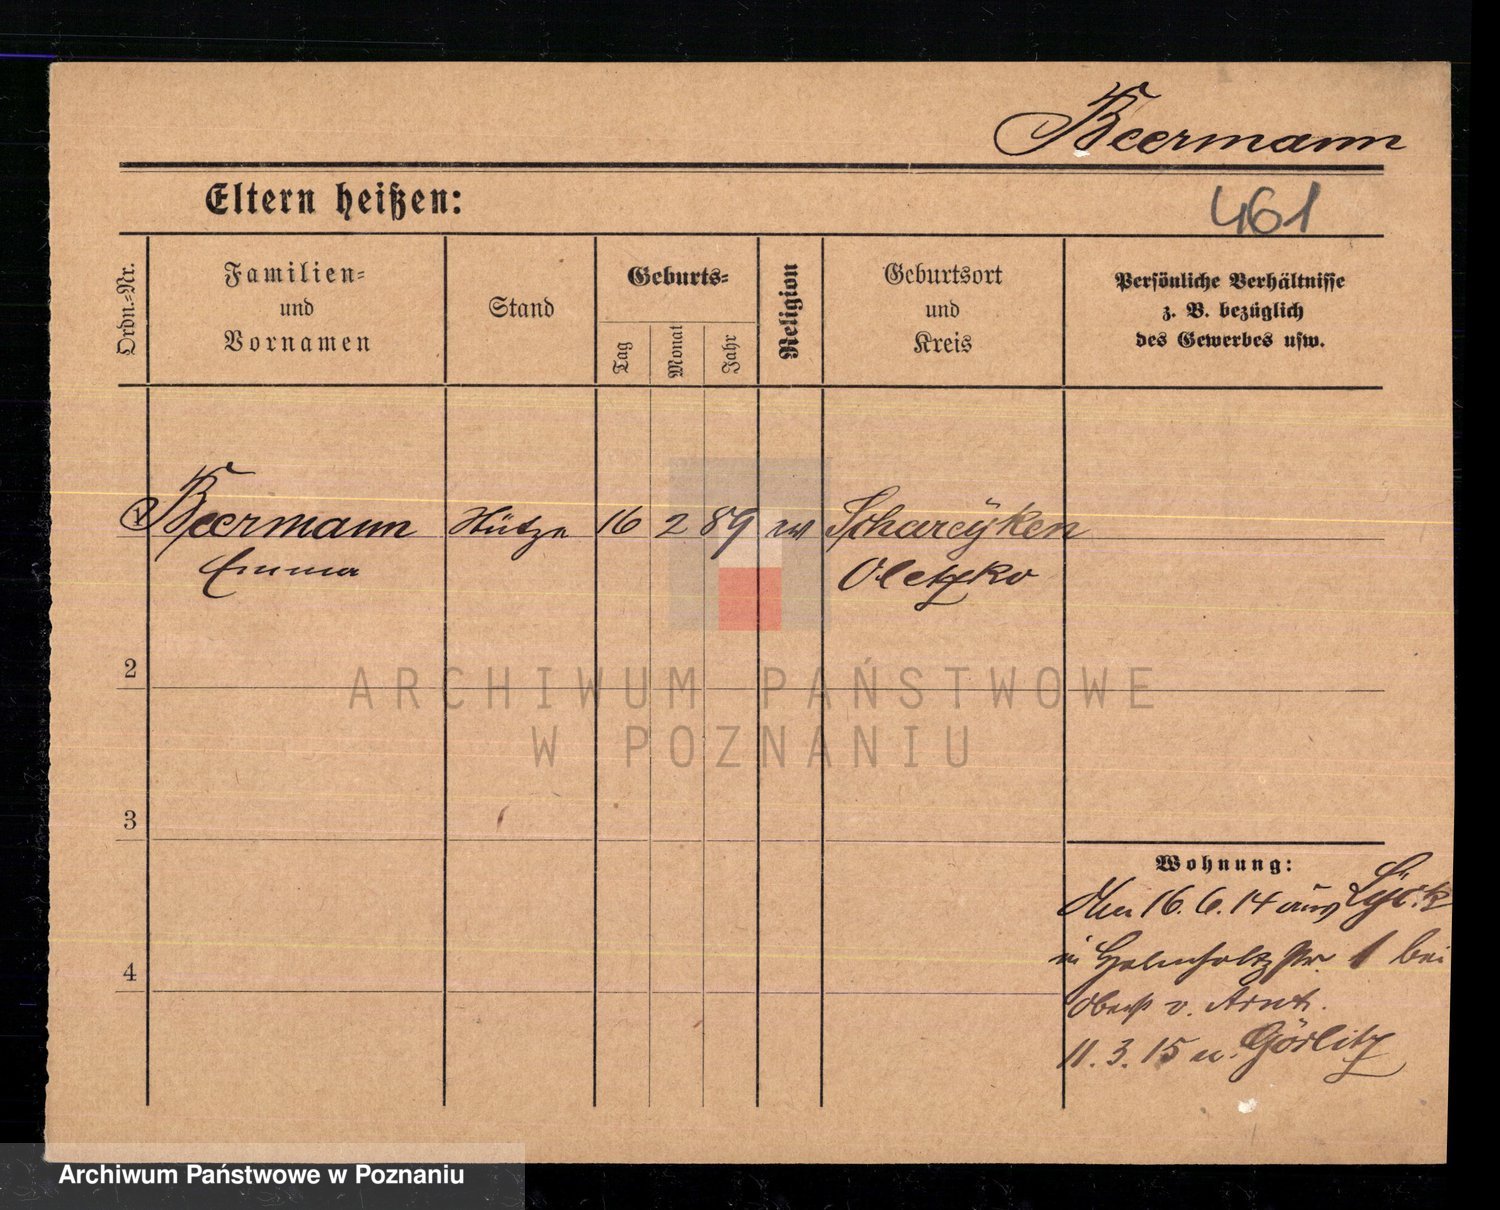 Beermann
Eltern heißen:
461
Ordn.-Nr.
Familien-
und
Vornamen
Stand
Geburts-
Tag
Monat
Jahr
Religion
Geburtsort
und
Kreis
Persönliche Verhältnisse
z. B. bezüglich
des Gewerbes usw.
1 Beermann Stütze 16 2 89 ev Schareÿken
Emma Oletzko
2
3
4
Wohnung:
Am 16.6.14 aus Lyck
in Helmholtzstr. 1 bei
Oberst v. Arnt.
11.3.15 n. Görlitz
ARCHIWUM PAŃSTWOWE
W POZNANIU
Archiwum Państwowe w Poznaniu